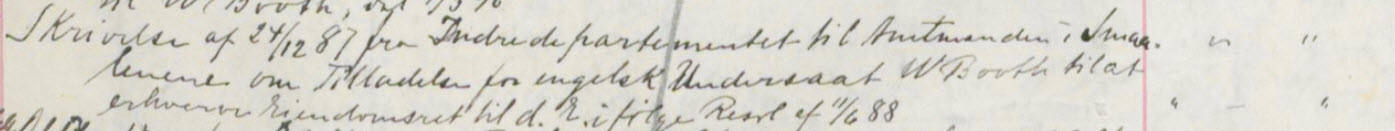 W Booth,
Skrivelse af 24/12 87 fra Indredepartementet til Amtmanden i Smaa- " "
lenene om Tilladelse for engelsk Undersaat W Booth til at
erhverve Eiendomsret til d. E. ifølge Resol af 11/6 88 " - "